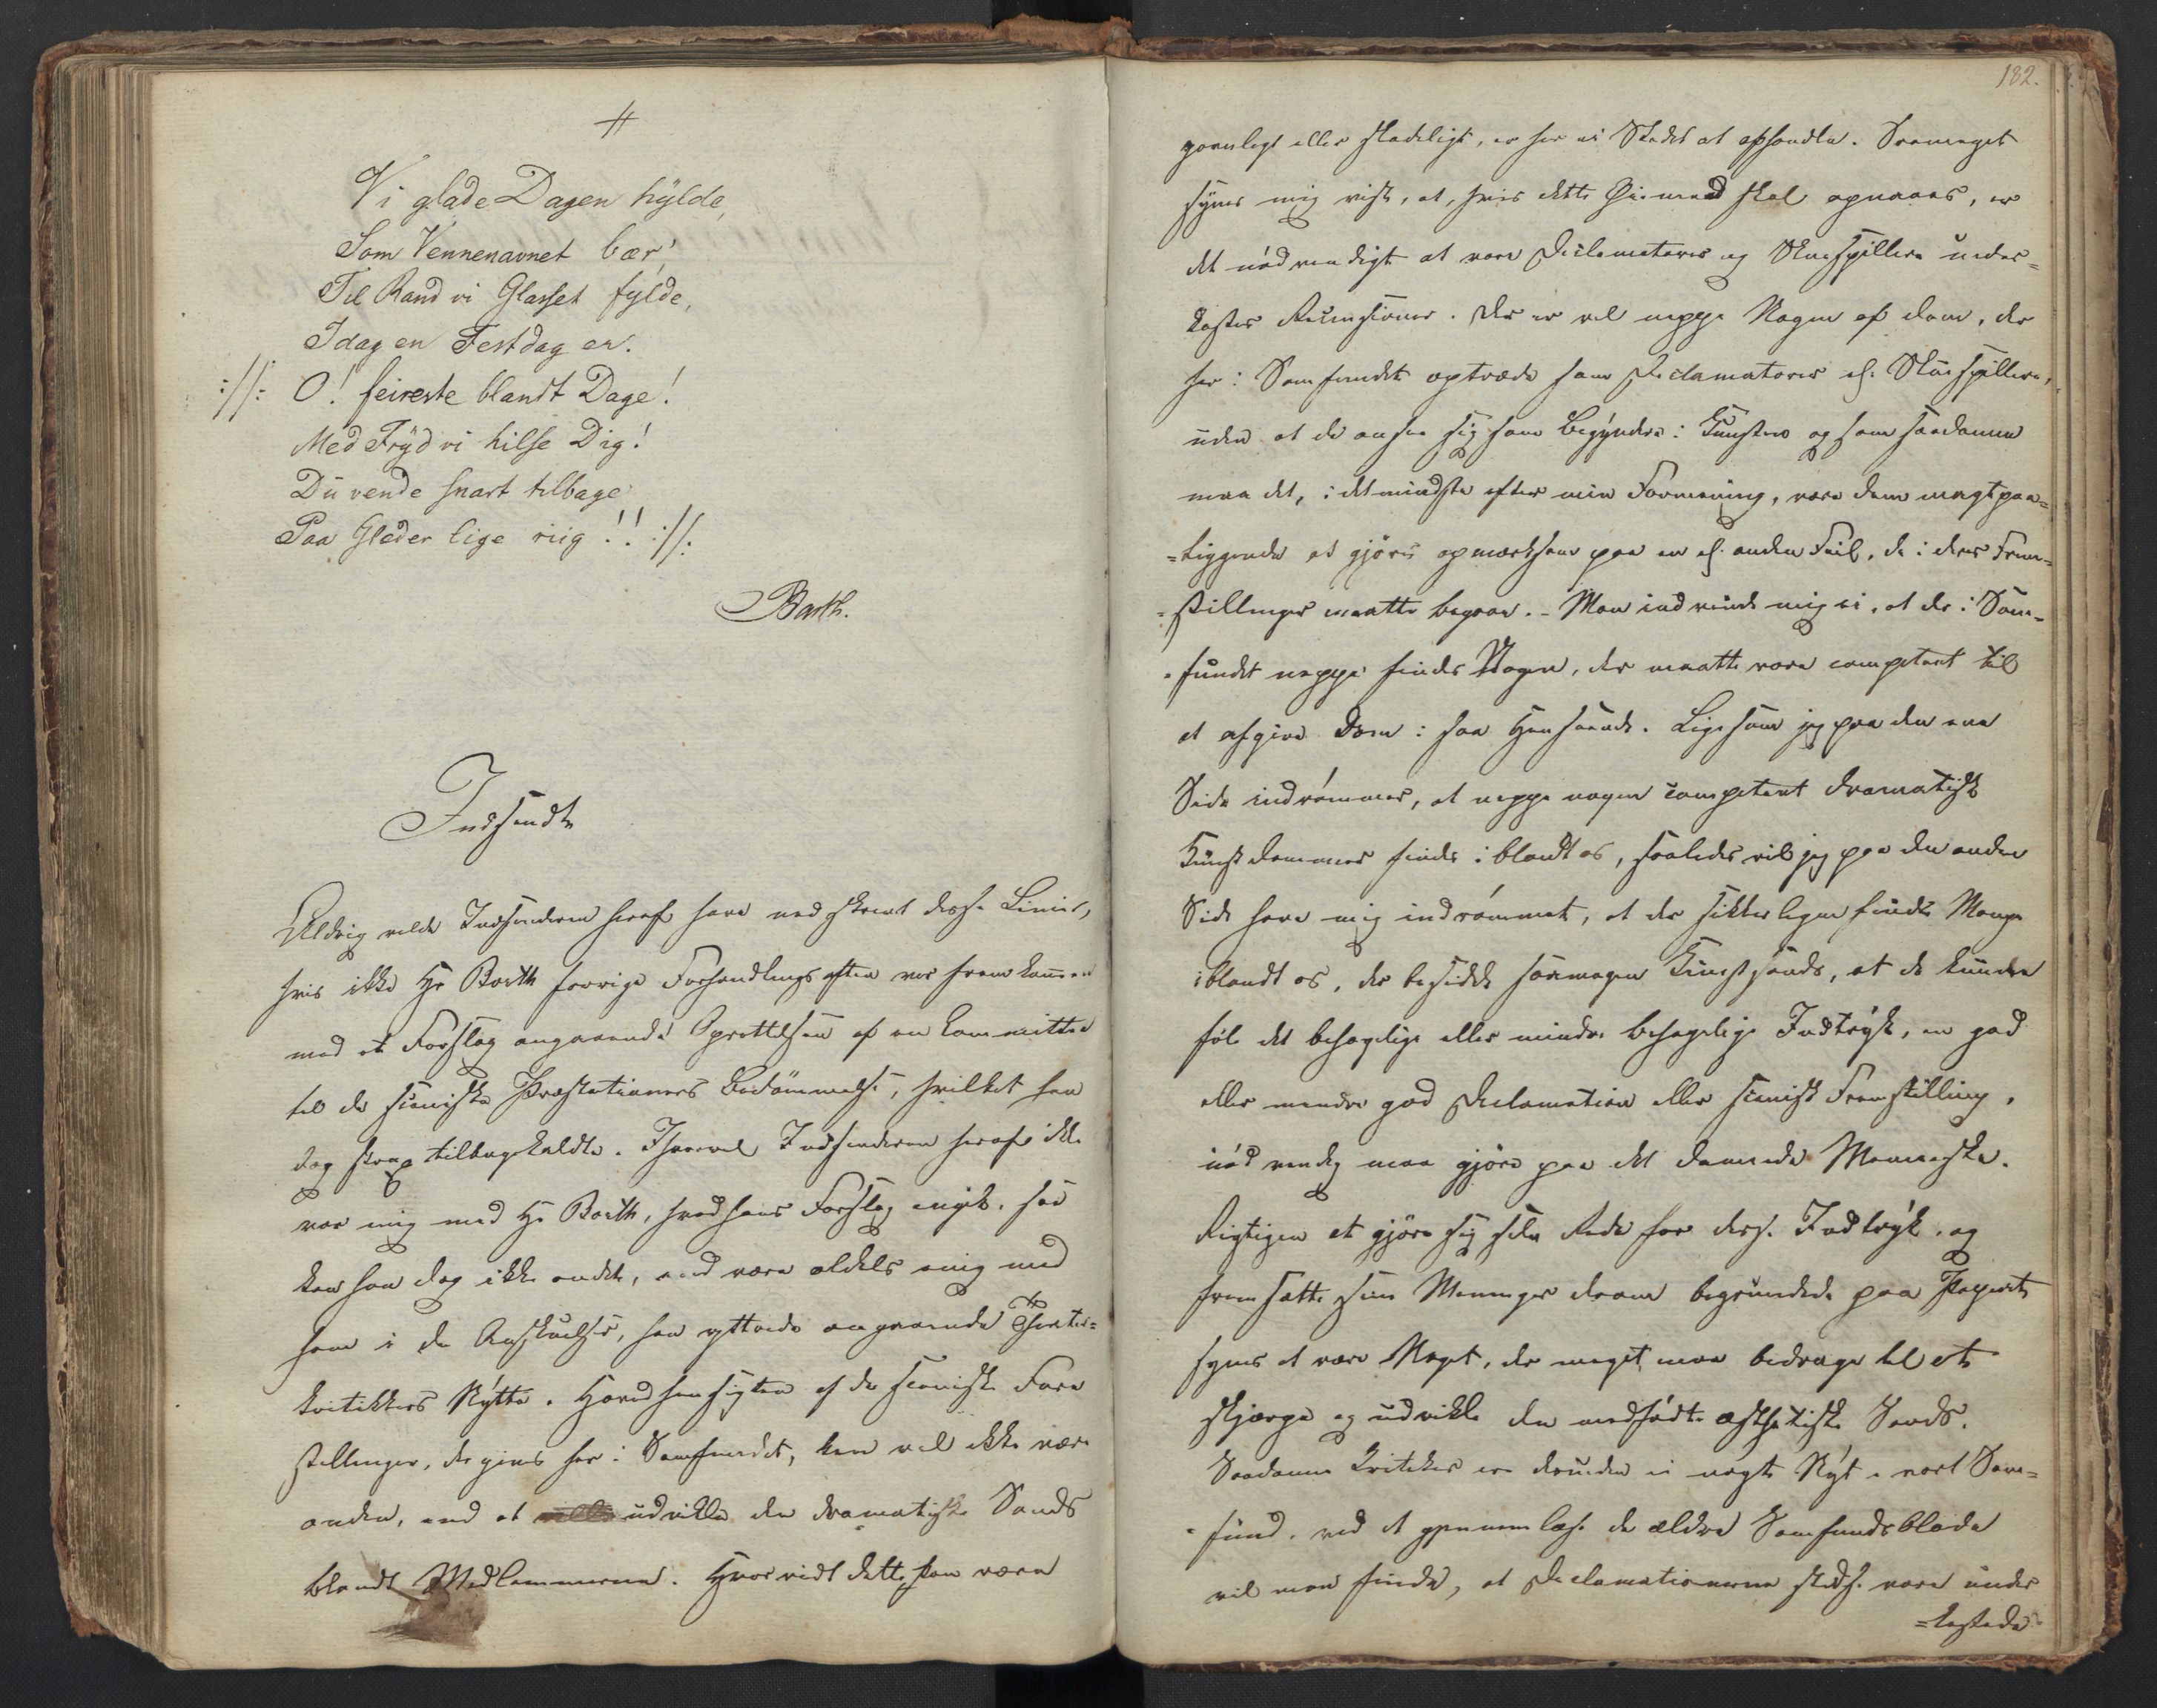 #
Vi glade Dagen hylde,
Som Vennenavnet bær',
Til Rand vi Glasset fylde,
Idag en Festdag er.
:||: O! feireste blandt Dage!
Med Fryd vi hilse Dig!
Du vende snart tilbage
Paa Glæder lige riig!! :||:
Barth.
Indsendt
Aldrig vilde Indsenderen heraf have nedskrevet disse Linier,
hvis ikke Hr Barth forrige Forhandlingsaften var fremkommen
med et Forslag angaaende Oprettelsen af en Committee
til de sceniske Præstationers Bedømmelse, hvilket han
dog strax tilbagekaldte. Ihvorvel Indsenderen heraf ikke
var enig med Hr Barth, hvad hans Forslag angik, saa
kan han dog ikke andet, end være aldeles enig med
ham i de Anskuelser, han yttrede angaaende Theater-
kritikkers Nytte. Hovedhensigten af de sceniske Fore
stillinger, der gives her i Samfundet, kan vel ikke være
anden, end at udvikle den dramatiske Sands
blandt Medlemmerne. Hvorvidt dette kan være
182.
gavnligt eller skadeligt, er her ei Stedet at afhandle. Saameget
synes mig vist, at, hvis dette Øiemed skal opnaaes, er
det nødvendigt at vore Declamatorer og Skuespillere under-
kastes Recensioner. Der er vel neppe Nogen af dem, der
her i Samfundet optræde som Declamatorer el. Skuespillere,
uden at de ansee sig som Begyndere i Kunsten og som saadanne
maa det, i det mindste efter min Formening, være dem magtpaa-
=liggende at gjøres opmærksom paa en el. anden Feil, de i deres Frem-
=stillinger maatte begaae. - Man indvende mig ei, at der i Sam-
=fundet neppe findes Nogen, der maatte være competent til
at afgive Dom i saa Henseende. Ligesom jeg paa den ene
Side indrømmer, at neppe nogen competent dramatisk
Kunstdommer findes iblandt os, saaledes vil jeg paa den anden
Side have mig indrømmet, at der sikkerligen findes Mange
iblandt os, der besidde saamegen Kunstsands, at de kunne
føle det behagelige eller mindre behagelige Indtryk, en god
eller mindre god Declamation eller scenisk Fremstilling,
nødvendig maa gjøre paa det dannede Menneske.
Rigtigen at gjøre sig selv Rede for disse Indtryk, og
fremsætte sine Meninger derom begrundede paa Papiret,
synes at være Noget, der meget maa bidrage til at
skjærpe og udvikle den medfødte æsthetiske Sands.
Saadanne Kritiker ere desuden ei noget Nyt i vort Sam-
=fund. ved at gjennemlæse de ældre Samfundsblade
vil man finde, at Declamationerne stedse vare under
=kastede